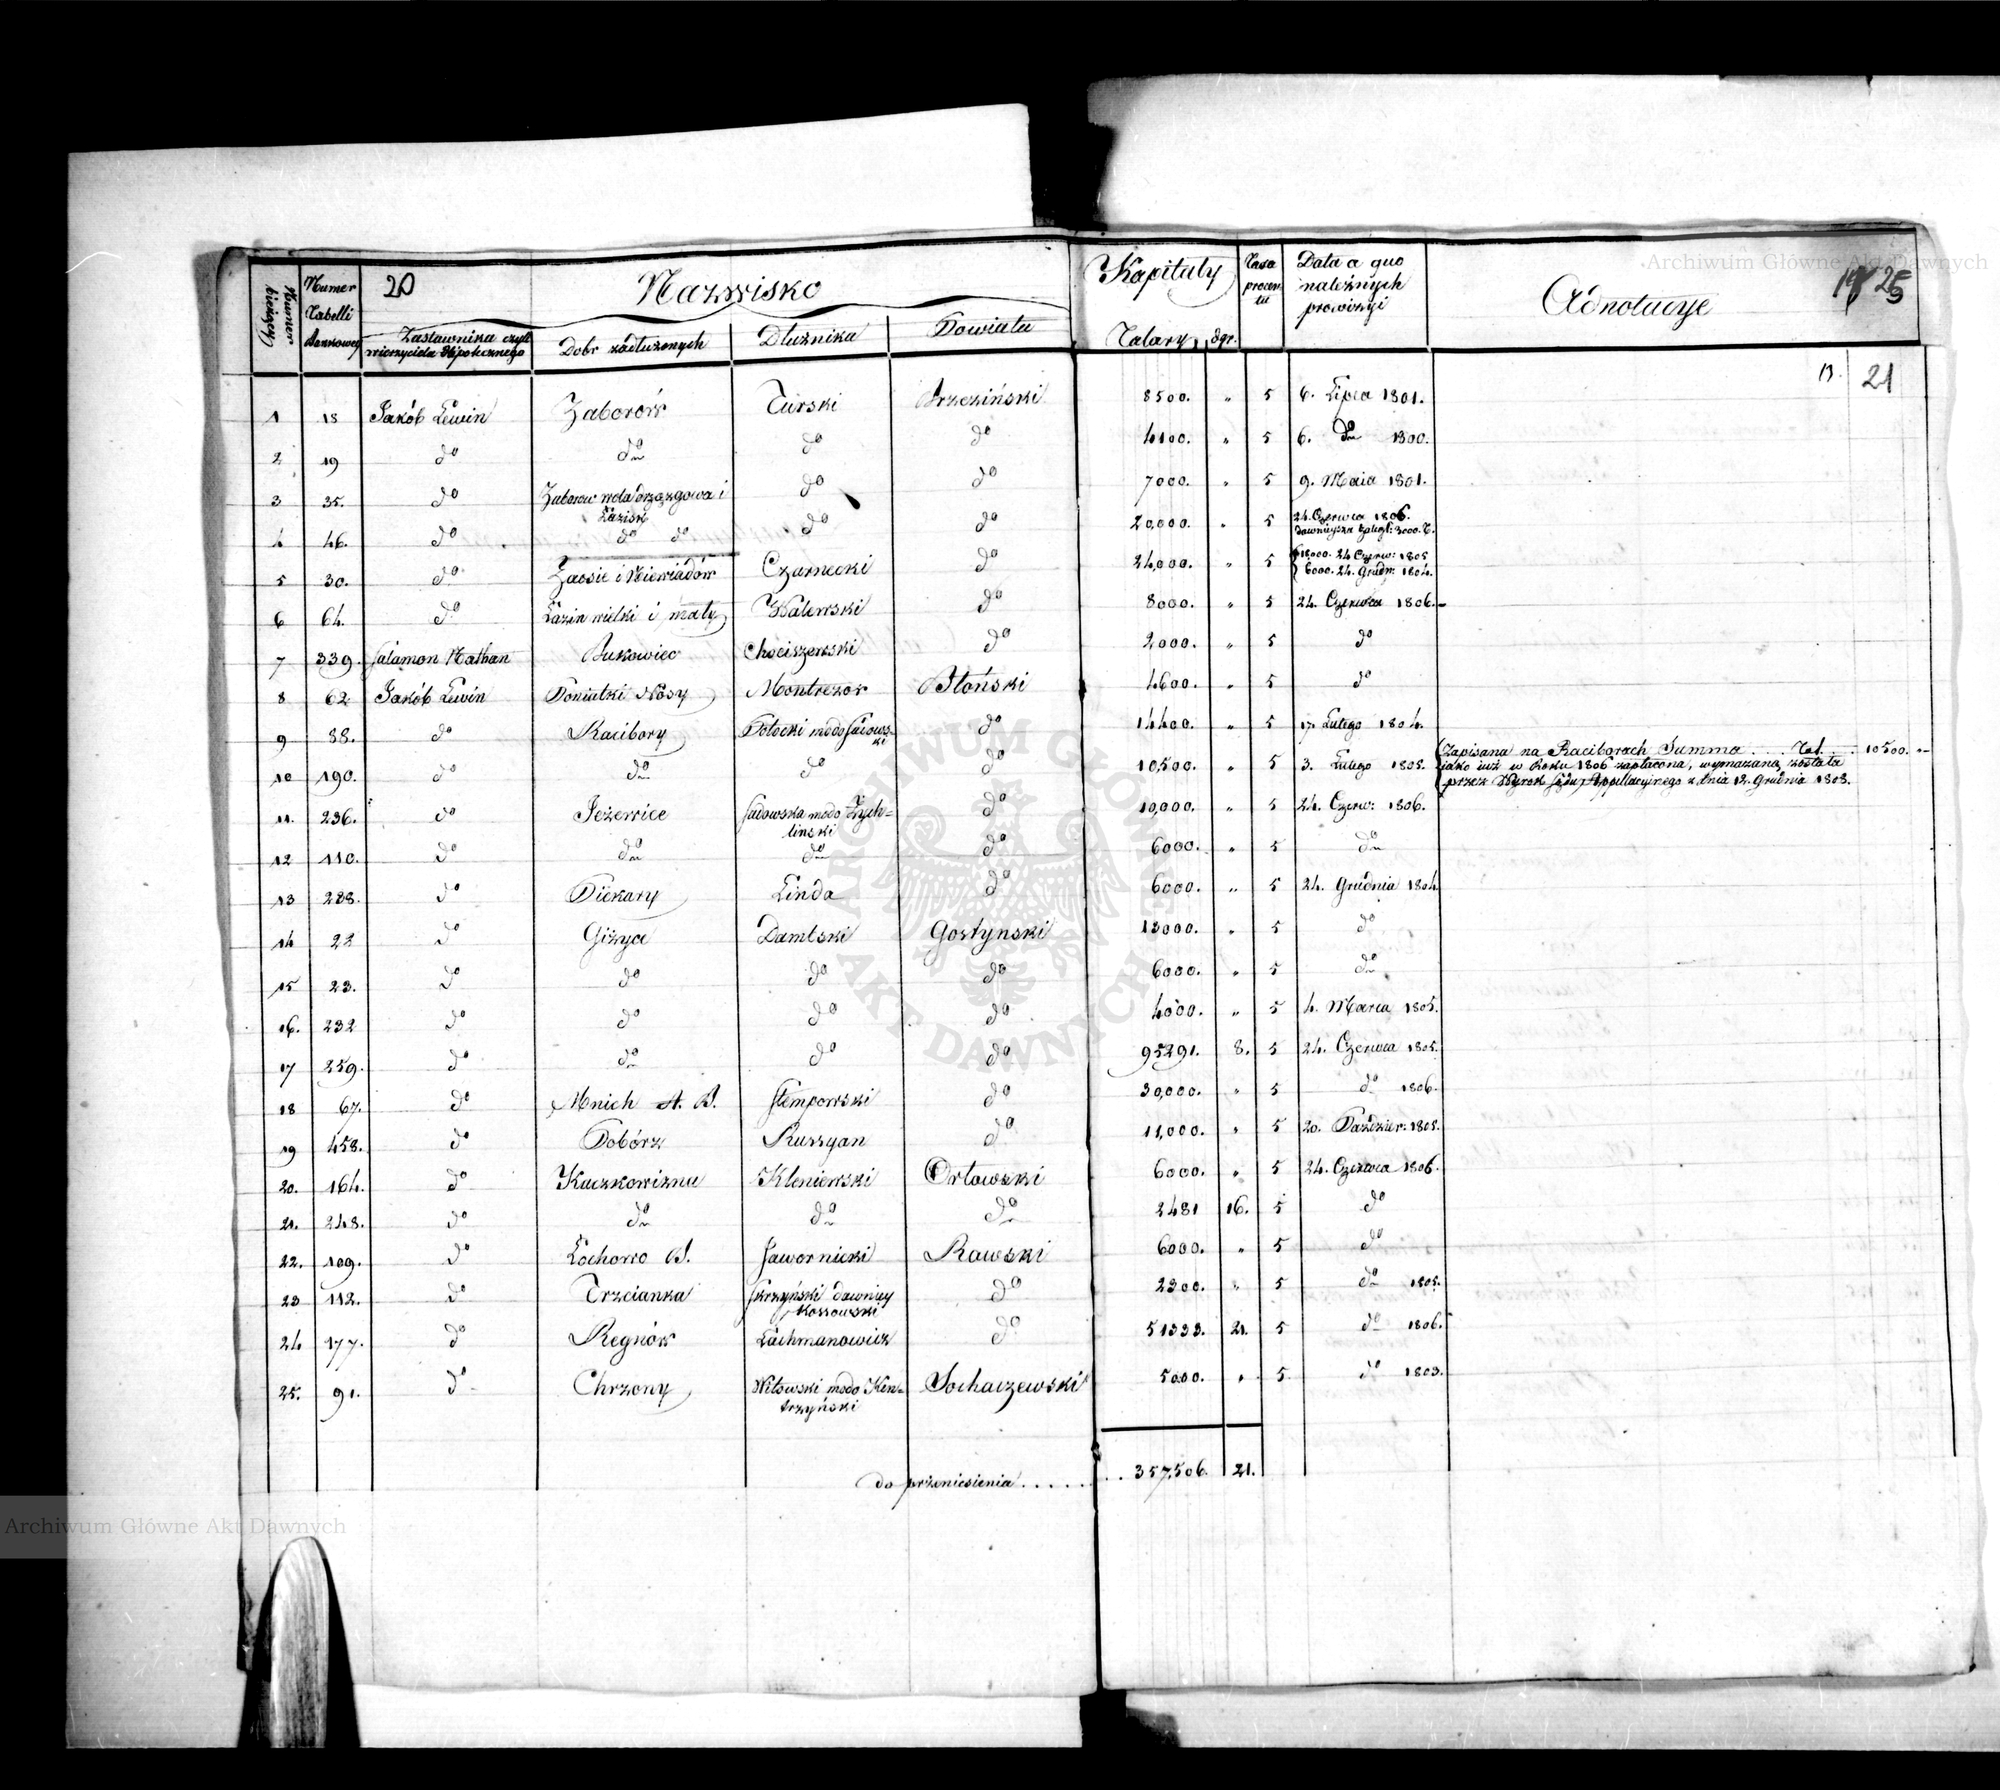 Archiwum Główne Akt Dawnych
Numer bieżący
Numer Tabelli Bankowey
20
Nazwisko
Zastawnika czyli wierzyciela Hypotecznego
Dobr zadłużonych
Dłużnika
Powiatu
Kapitały
Talary dgr.
Taxa procentu
Data a quo należnych prowizyi
Adnotacye
25
13. 21
1 18 Jakób Lewin Zaborów Turski Brzeziński 8500. " 5 6. Lipca 1801.
2 19 do do do do 4100. " 5 6. do 1800.
3 35. do Zaborow wola i Łazisk do do 7000. " 5 9. Maia 1801.
4 46. do do do do do 20,000. " 5 24. Czerwca 1806. dawnieysza zaległ: 3000. T.
5 30. do Zaosie i Niewiadów Czarnecki do 24,000. " 5 18000. 24 Czerw: 1805 6000. 24. Grudn: 1804.
6 64. do Łazin wielki i mały Walewski do 8000. " 5 24. Czerwca 1806.
7 339. Salamon Nathan Bukowiec Chociszewski do 2000. " 5 do
8 62 Jakób Lewin Poniatki Nosy Montrezor Błoński 4600. " 5 do
9 88. do Racibory Potocki modo Sadowski do 14400. " 5 17. Lutego 1804.
10 190. do do do do 10,500. " 5 3. Lutego 1805. Zapisana na Raciborach Summa .... Tal. ... 10500. "-
jako iuż w Roku 1806 zapłacona, wymazana została
przez Wyrok Sądu Appellacyinego z dnia 12. Grudnia 1808.
11. 236. do Jeżewice Sadowska modo Żychliński do 10,000. " 5 24. Czerw: 1806.
12 110. do do do do 6000. " 5 do
13 288. do Piekary Linda do 6000. " 5 24. Grudnia 1804.
14 22 do Giżyce Dambski Gostynski 13000. " 5 do
15 23. do do do do 6000. " 5 do
16. 232 do do do do 4000. " 5 4. Marca 1805.
17 259. do do do do 95291. 8. 5 24. Czerwca 1805.
18 67. do Mnich A. B. Stempowski do 30,000. " 5 do 1806.
19 458. do Pobórz Russyan do 11,000. " 5 20. Paździer: 1805.
20. 164. do Kaczkowizna Kleniewski Orłowski 6000. " 5 24. Czerwca 1806.
21. 248. do do do do 2481 16. 5 do
22. 109. do Łochowo B. Jawornicki Rawski 6000. " 5 do
23 112. do Trzcianka Skrzyński dawniey Kossowski do 2300. " 5 do 1805.
24 177. do Regnów Lachmanowicz do 51333. 21. 5 do 1806.
25. 91. do Chrzony Witowski modo Kentrzyński Sochaczewski 5000. " 5 do 1803.
do przeniesienia ...... 357,506. 21.
ARCHIWUM GŁÓWNE AKT DAWNYCH
Archiwum Główne Akt Dawnych